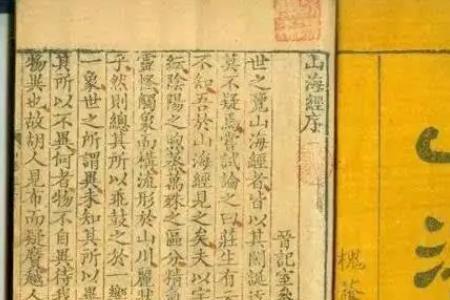 山海經序
晉記室參
世之覽山海經者皆以其閎誕迂
莫不疑焉嘗試論之曰莊生有云
不知吾於山海經見之矣夫以宇
紜陰陽之煦蒸萬殊之區分精氣
靈怪觸象而構流形於山川麗狀
乎然則總其所以乖鼓之於一響
一象世之所謂異未知其所以異
其所以不異何者物不自異待我
物異也故胡人見布而疑黂越人
山海
槐蔭